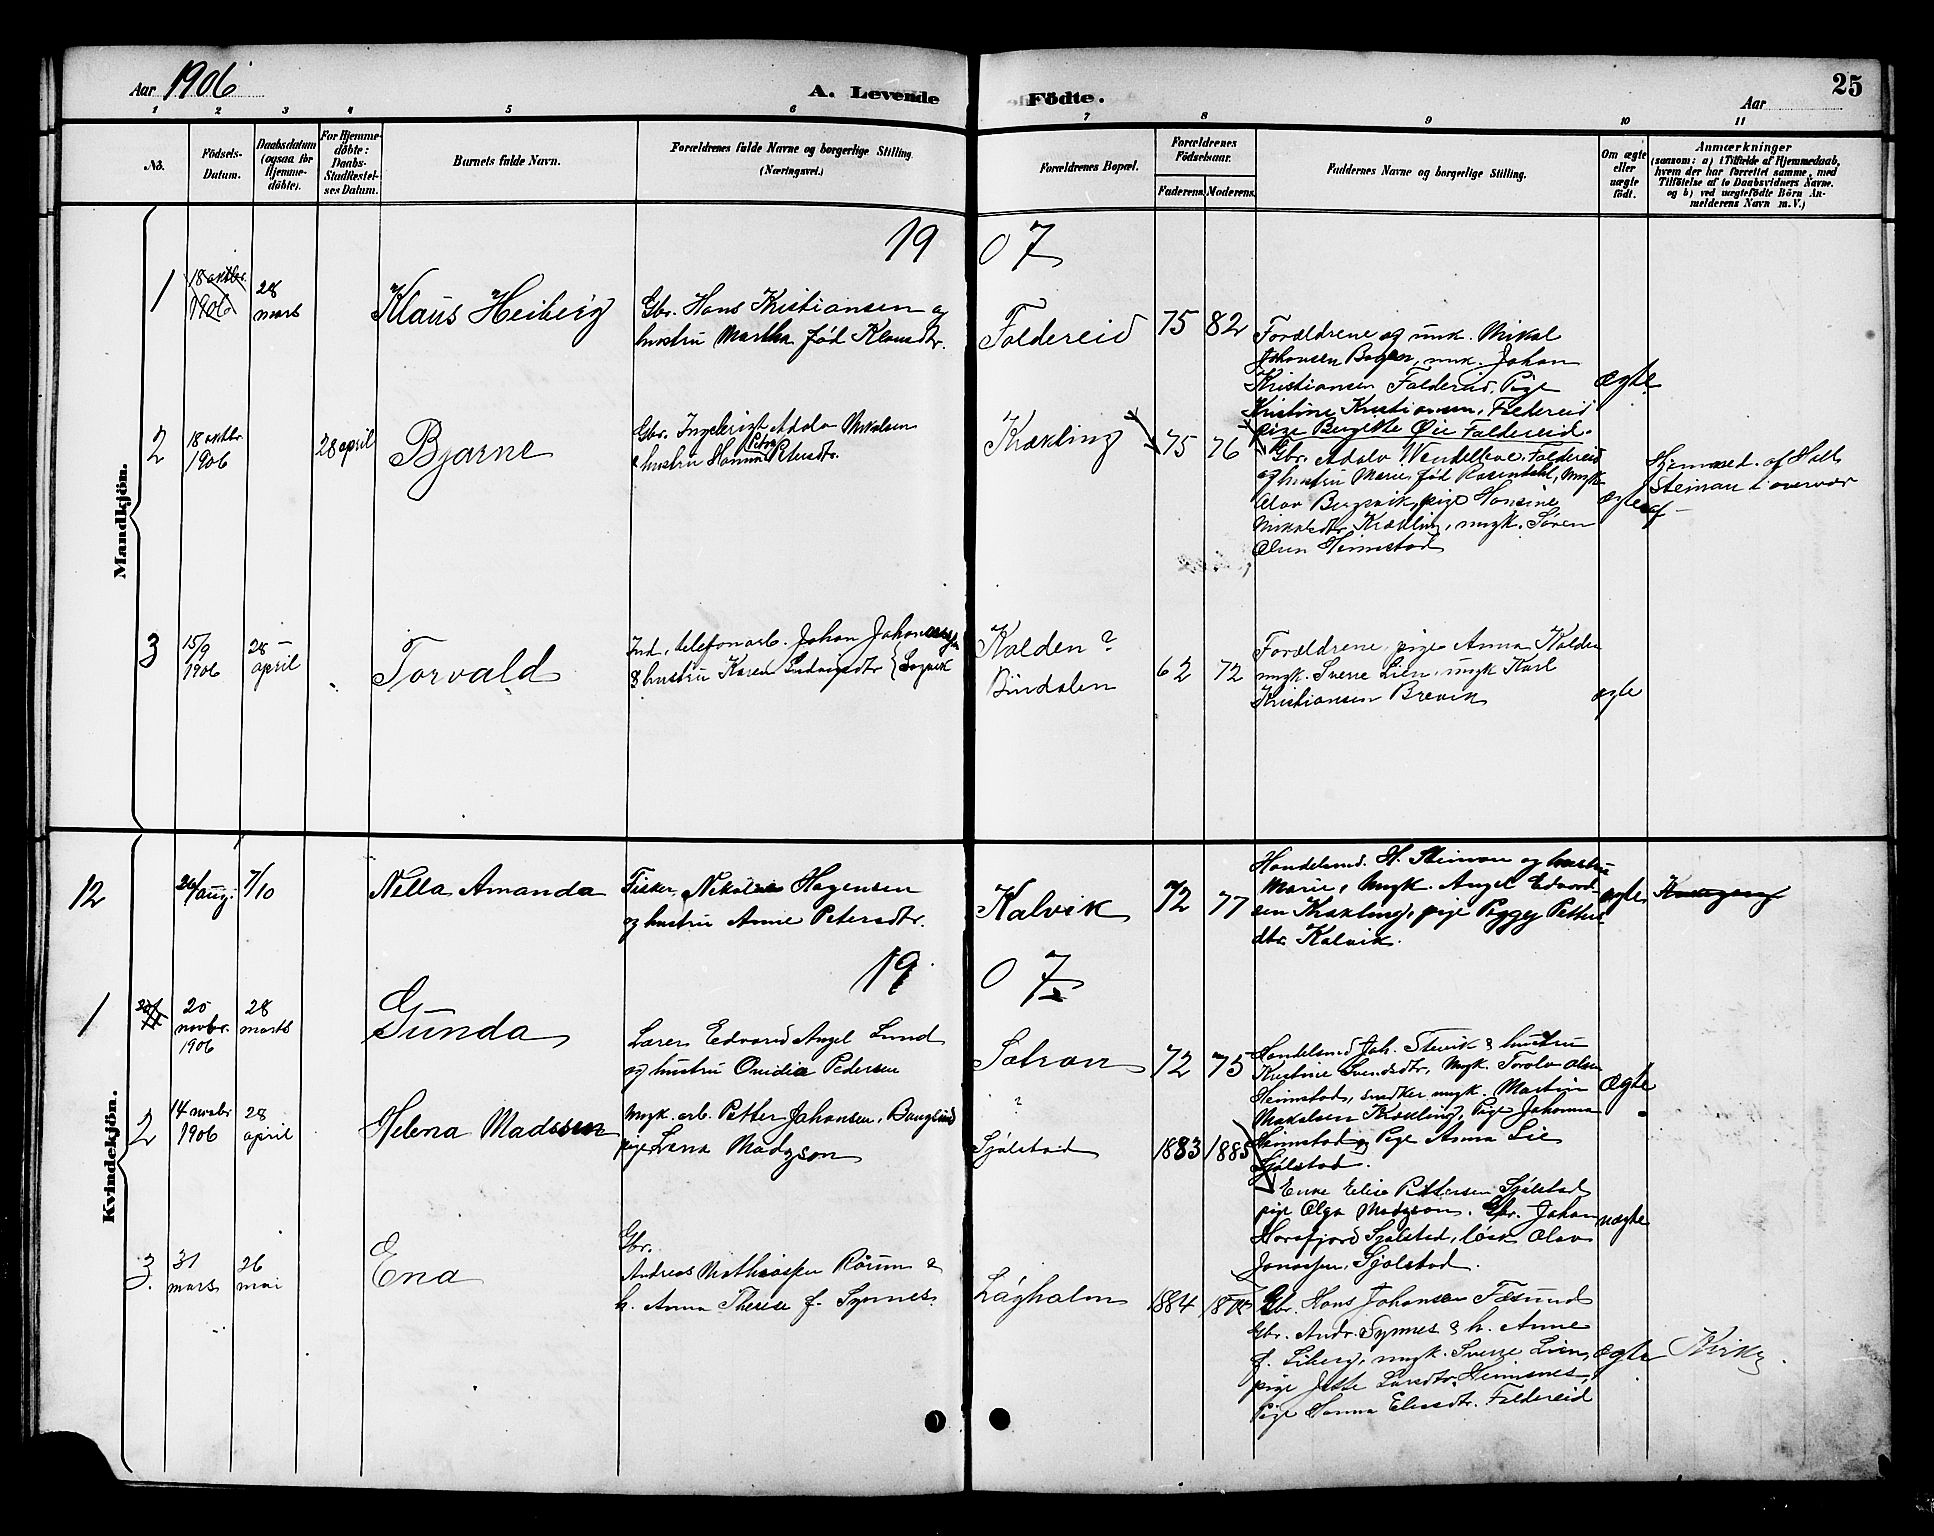 Aar 1906
A. Levende Födte.
Aar
25
1 2 3 4 5 6 7 8 9 10 11
No.
Födsels-Datum.
Daabsdatum (ogsaa for Hjemmedöbte).
For Hjemmedöbte: Daabs-Stadfestelses Datum.
Barnets fulde Navn.
Forældrenes fulde Navne og borgerlige Stilling. (Næringsvei.)
Forældrenes Bopæl.
Forældrenes Födselsaar.
Faderens. Moderens.
Faddernes Navne og borgerlige Stilling.
Om ægte eller uægte födt.
Anmærkninger
(saasom: a) i Tilfælde af Hjemmedaab, hvem der har forrettet samme, med Tilföielse af to Daabsvidners Navne. og b) ved uægtefödte Börn Anmelderens Navn m. V.)
Mandkjön.
1907
1
18 oktbr. 1906
28 mars
Klaus Heiberg
Gbr. Hans Kristiansen og
hustru Martha fød Klausdtr.
Foldereid
75 82
Forældrene og unk. Mikal
Johansen Bogen, unk. Johan
Kristiansen Foldereid, Pige
Kristine Kristiansen, Foldereid
pige Bergitte Øie Foldereid.
ægte
2
18 oktbr 1906
28 april
Bjarne
Gbr. Ingebrigt Addo Mikalsen
& hustru Hanna Petra Petersdtr.
Kvækling
75 76
Gbr. Adolv Wendelbo, Foldereid
og hustru Marie, fød Rosendahl, ungk.
Olav Bergsvik, pige Hansine
Mikalsdtr. Kvækling, ungk. Søren
Olsen Heimstad
ægte
Hjemmed. af Hall
Steinan i overvær
af –
3
15/9 1906
28 april
Torvald
Ind. telefonarb. Johan Johannessen
& hustru Karen Ludvigsdtr
Kolden ?
Bindalen
62 72
Forældrene, pige Anna Kolden
ungk. Sverre Lien, ungk Karl
Kristiansen Brevik
ægte
Kvindekjön.
12
26/aug.
7/10
Nella Amanda
Fisker Nikolai Hagensen
og hustru Anne Petersdtr.
Kalvik
72 77
Handelsmd. H. Steinan og hustru
Marie, Ungk. Angel Edvardsen
Kvækling, pige Peggy Petters
dtr. Kalvik.
ægte
1907
1
20 novbr. 1906
28 marts
Gunda
Lærer Edvard Angel Lund
og hustru Ovidia Pedersen
Satran
72 75
Handelsmd Joh. Stevik & hustru
Kristine Svendsdtr, Ungk. Torolv Olsen
Heimstad, snedker ungk. Martin
Mikalsen Kvækling, Pige Johanna
Heimstad og Pige Anna Lie
Sjølstad.
ægte
2
14 novbr 1906
28 april
Helena Madssen
Ungk. arb. Petter Johansen, Bangsund
pige Lena Madsson
?
Sjølstad
1883 1885
Enke Elise Pettersen Sjølstad
pige Olga Madsson. Gbr. Johan
Horsfjord Sjølstad, løsk Olav
Jonassen, Sjølstad.
uægte
3.
31 mars
26 mai
Ena
Gbr.
Andreas Mathiassen Rörum &
h. Anna Therese f. Synnes.
Lågholm
1884
Gbr. Hans Johansen Fæsund
Gbr. Andr. Synnes & h. Anne
f. Liberg, ungk. Sverre Lien,
pige Jette Larsdtr. Heimsnes,
Pige Hanna Eliasdtr. Foldereid
ægte
Kirke